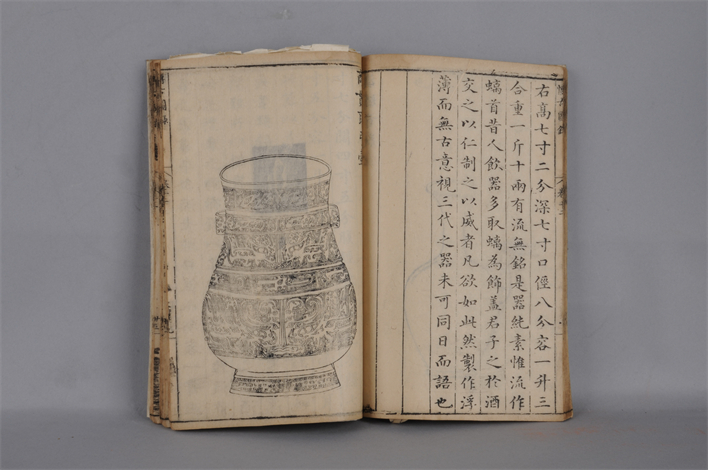 右高七寸二分深七寸口徑八分容一升三
合重一斤十兩有流無銘是器純素惟流作
螭首昔人飲器多取螭為飾蓋君子之於酒
交之以仁制之以威者凡欲如此然製作浮
薄而無古意視三代之器未可同日而語也